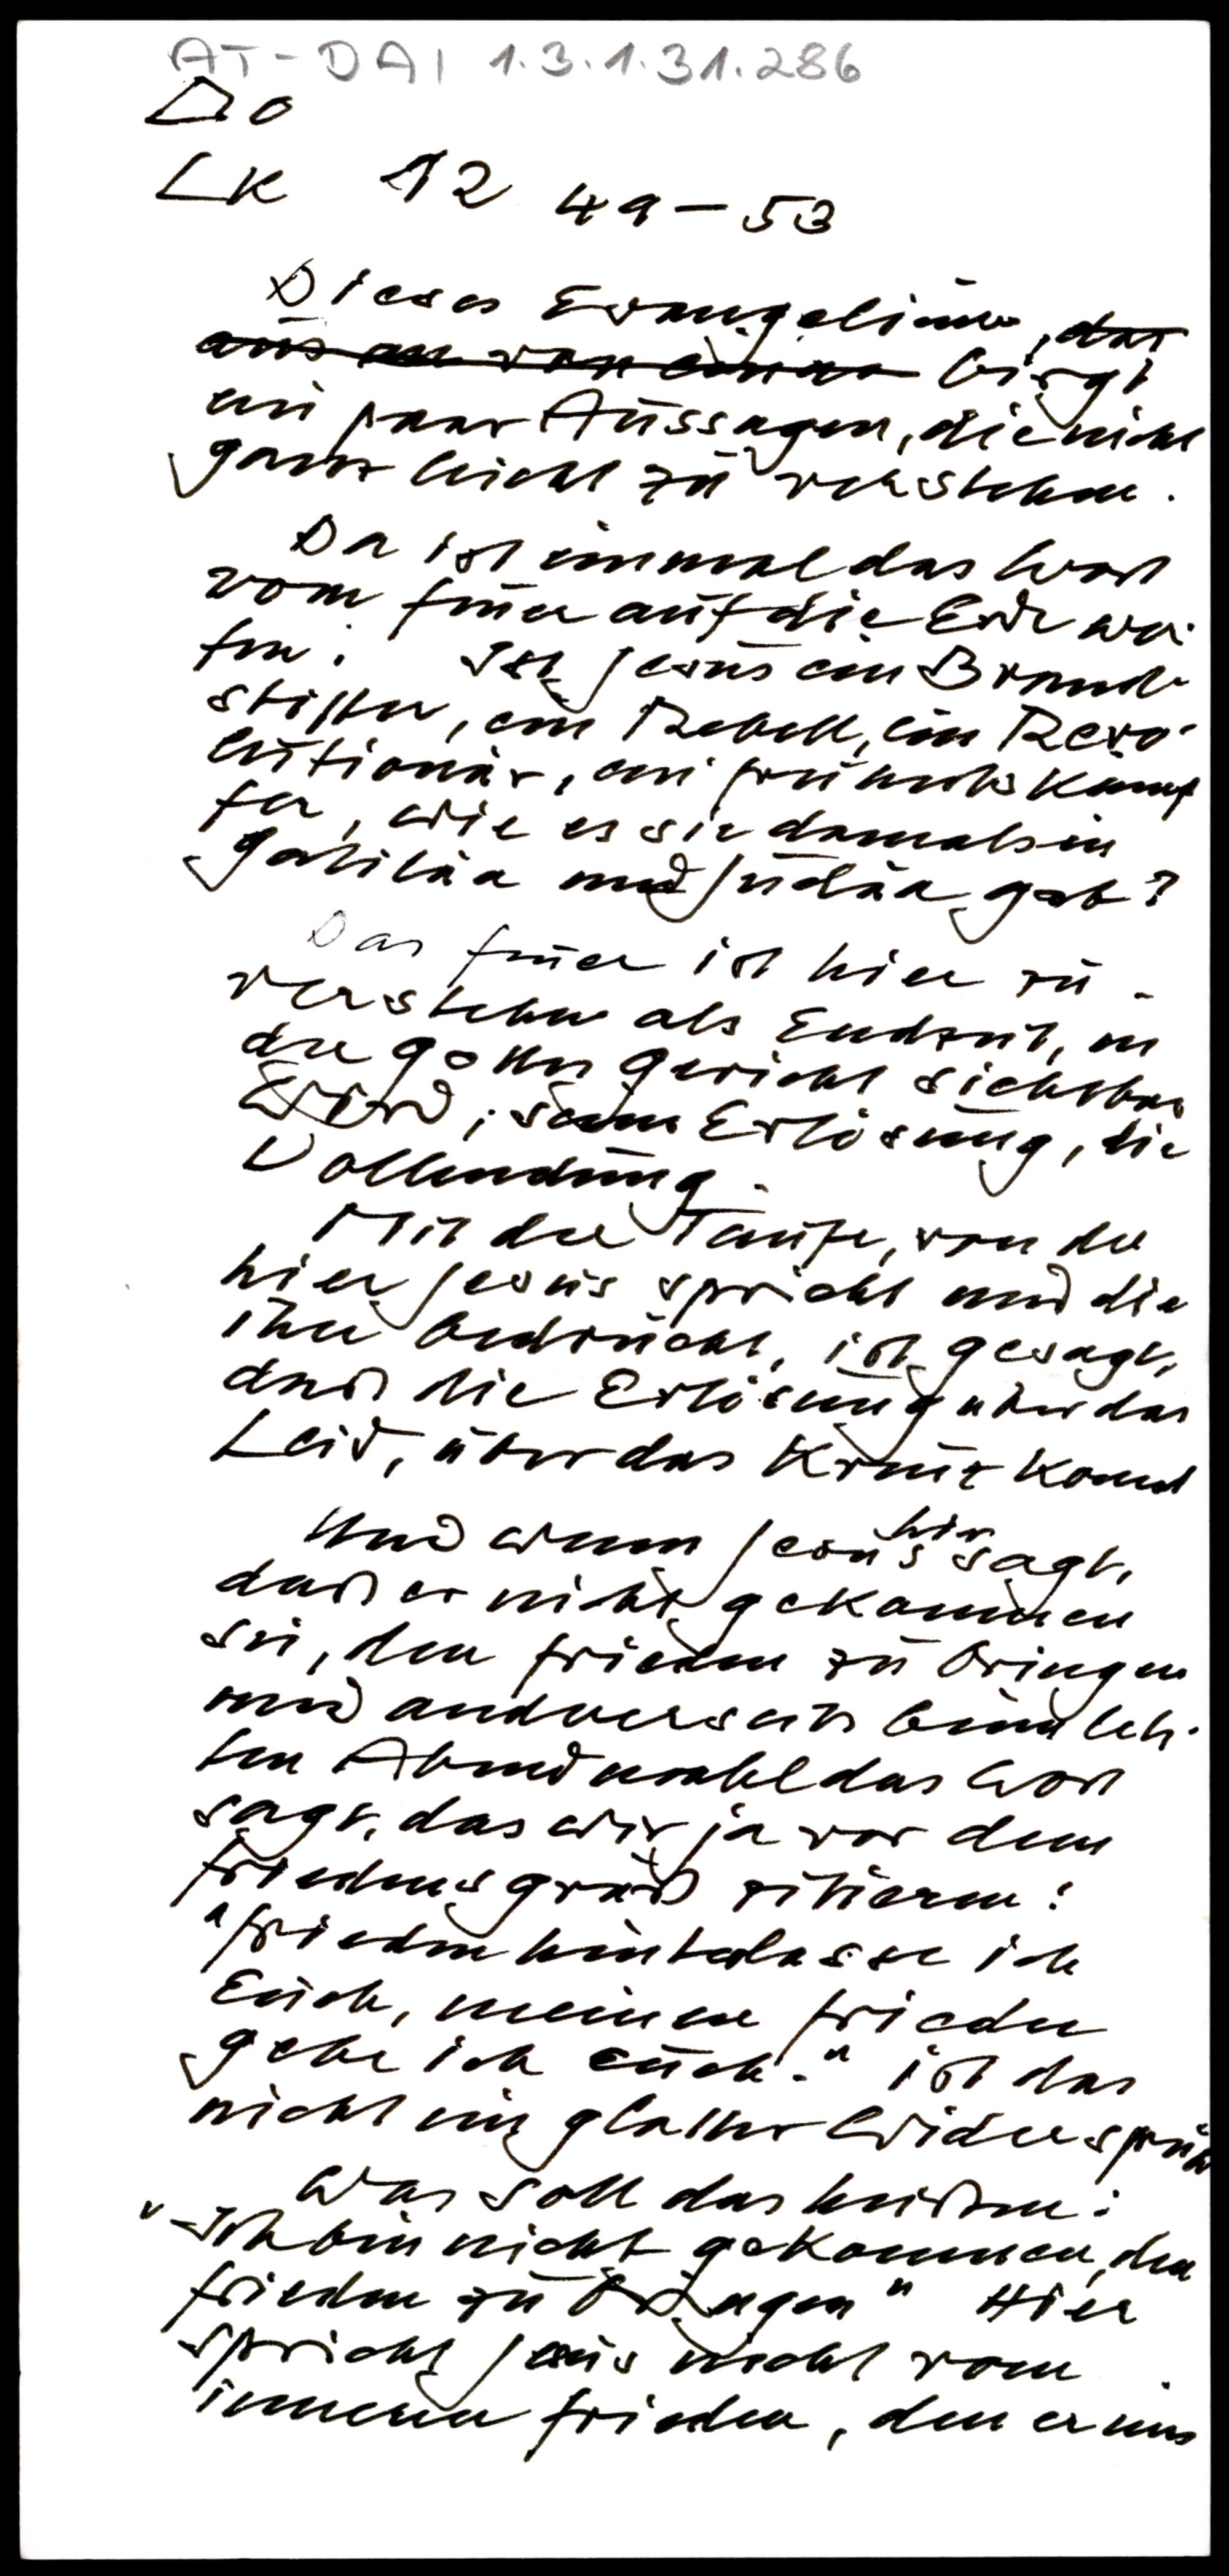 AT-DAI 1.3.1.31.286
Do
LK 12 49-53
Dieses Evangelium, das
aus birgt
ein paar Aussagen, die nicht
ganz leicht zu verstehen.
Da ist einmal das Wort
vom Feuer auf die Erde wer-
fen. Ist Jesus ein Brand-
stifter, ein Rebell, ein Revo-
lutionär, ein Freiheitskämpf
fer, wie es sie damals in
Galiläa und Judäa gab?
Das Feuer ist hier zu
verstehen als Endzeit, in
der Gottes Gericht sichtbar
wird, seine Erlösung, die
Vollendung.
Mit der Taufe, von der
hier Jesus spricht und die
ihn bedrückt, ist gesagt,
daß die Erlösung über das
Leid, über das Kreuz kommt
Und wenn Jesus hier sagt,
daß er nicht gekommen
sei, den Frieden zu bringen
und andererseits beim letz-
ten Abendmahl das Wort
sagt, das wir ja vor dem
Friedensgruß zitieren:
"Frieden hinterlasse ich
Euch, meinen Frieden
gebe ich euch." ist das
nicht ein glatter Widerspruch
Was soll das heißen:
"Ich bin nicht gekommen, den
Frieden zu bringen" Hier
spricht Jesus nicht vom
inneren Frieden, den er uns